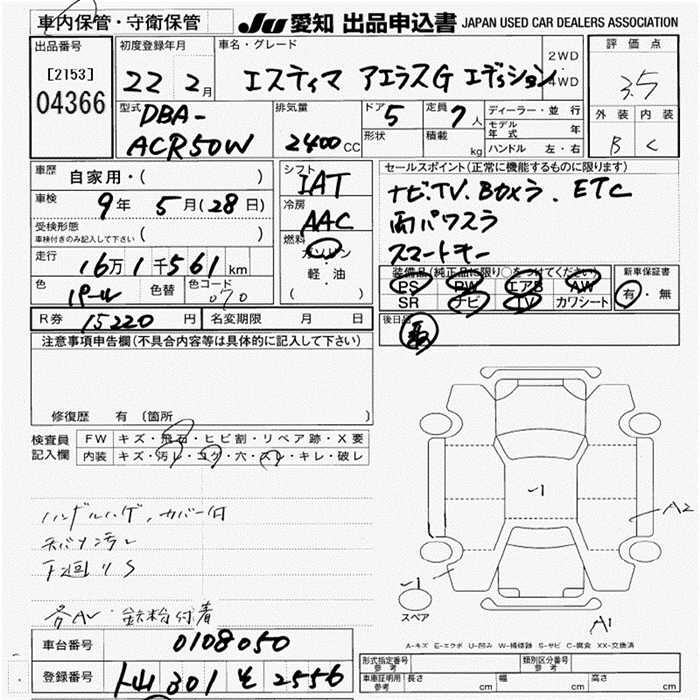 車内保管・守衛保管
JU 愛知 出品申込書 JAPAN USED CAR DEALERS ASSOCIATION
出品番号
[2153]
04366
初度登録年月
22 2月
車名・グレード
エスティマ アエラスG エディション
2WD
4WD
評価点
3.5
外装 内装
B C
型式
DBA-
ACR50W
排気量
2400 CC
ドア 5
形状
定員 7人
積載 kg
ディーラー・並行
モデル年式 年
ハンドル 左・右
車歴
自家用・( )
車検
9年 5月(28日)
受検形態
車検付きのみ記入して下さい ( )
走行
16万1千561km
色 パール 色替 色コード 070
シフト
IAT
冷房
AAC
燃料
ガソリン・
軽・油
( )
セールスポイント(正常に機能するものに限ります)
ナビ.TV.Bカメラ.ETC
両パワスラ
スマートキー
装備品(純正品に限り○をつけてください)
PS PW エアB AW
SR ナビ TV カワシート
新車保証書
有・無
R券 15220円
名変期限 月 日
後日品
注意事項申告欄(不具合内容等は具体的に記入して下さい)
修復歴 有〔箇所
検査員
記入欄
FW キズ・飛石・ヒビ割・リペア跡・X要
内装 キズ・汚レ・コゲ・穴・スレ・キレ・破レ
ハンドルハゲ,カバー付
下廻りS
各AW・鉄粉付着
-1
A2
-1
スペア
A1
A-キズ E-エクボ U-凹み W-補修跡 S-サビ C-腐食 XX-交換済
車台番号 0108050
登録番号 301 2556
形式指定番号
参考
類別区分番号
参考
車庫証明用
参考
長さ cm 幅 cm 高さ cm